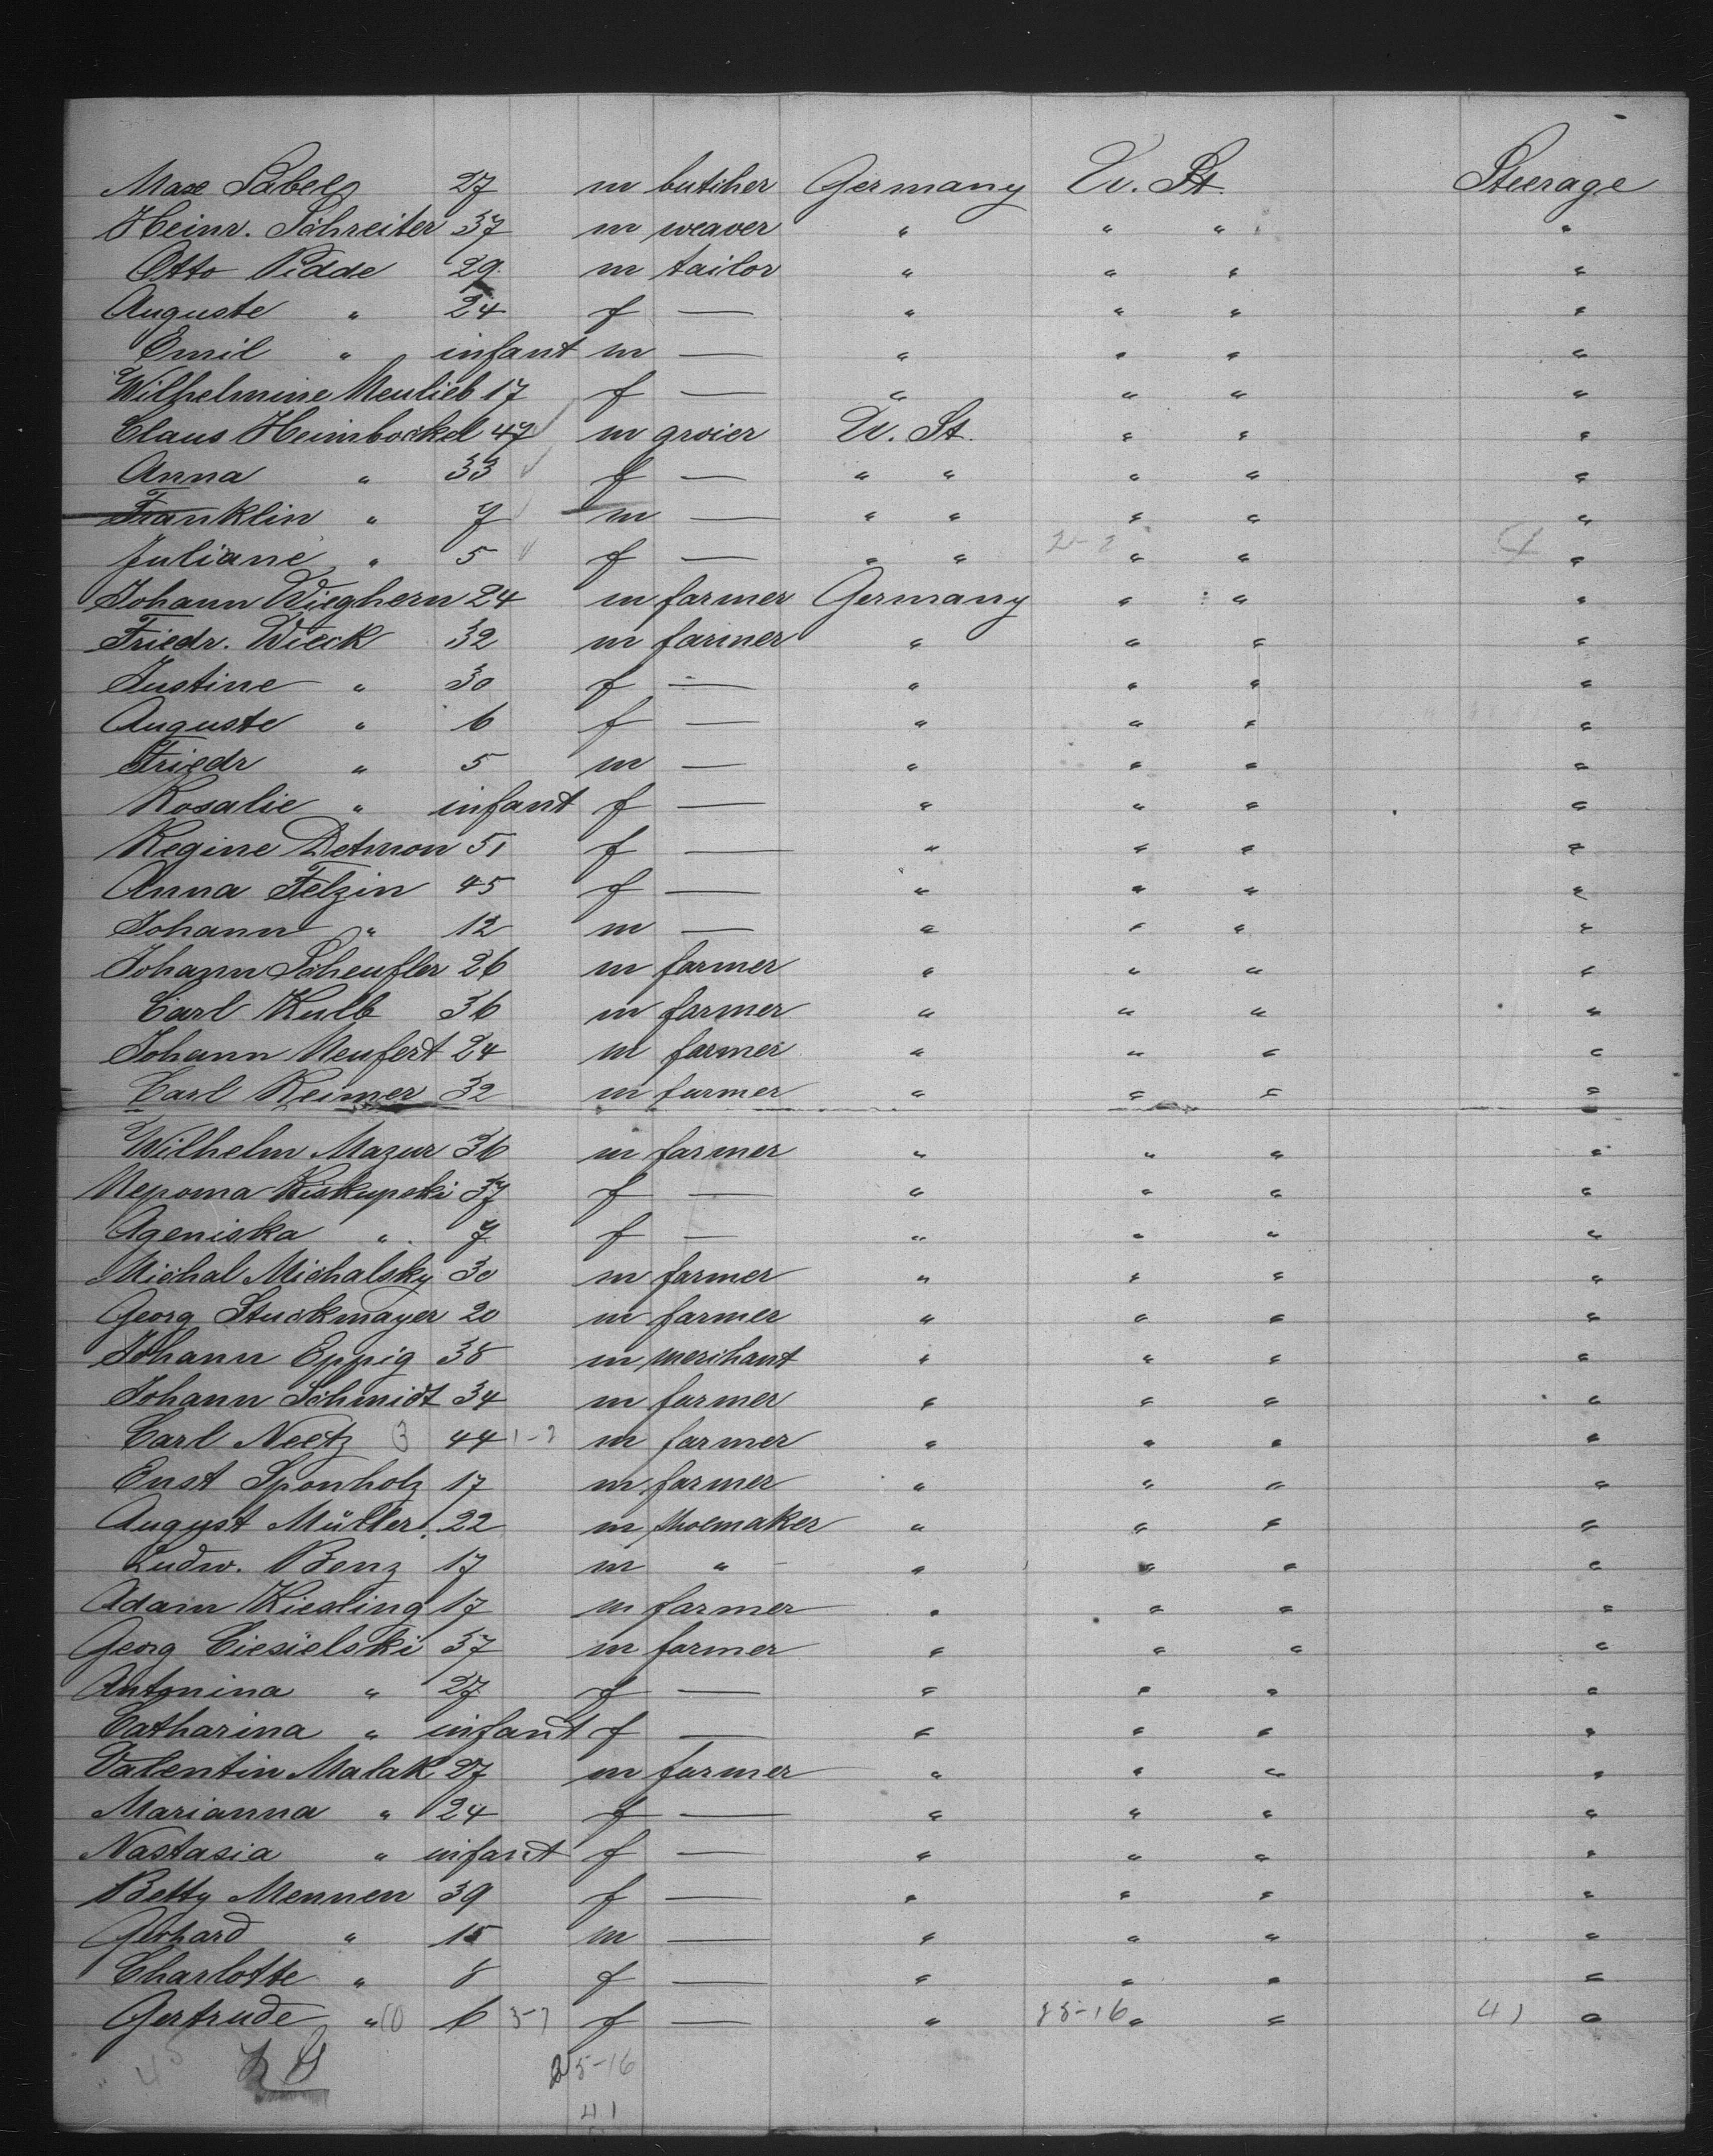 Max Sabels 27 m butcher Germany U. St. Steerage
Heinr. Schreiter 37 m weaver " " " "
Otto Pidde 29 m tailor " " " "
Auguste " 24 f — " " " "
Emil " infant m — " " " "
Wilhelmine Neulieb 17 f — " " " "
Claus Heimbockel 47 m grocer U. St. " " "
Anna " 33 f — " " " " "
Franklin " 7 m — " " " " "
Juliane " 5 f — " " " " 4 "
Johann Wieghern 24 m farmer Germany " " "
Friedr. Wieck 32 m farmer " " " "
Justine " 30 f — " " " "
Auguste " 6 f — " " " "
Friedr " 5 m — " " " "
Rosalie " infant f — " " " "
Regine Detmon 51 f — " " " "
Anna Felzin 45 f — " " " "
Johann " 12 m — " " " "
Johann Scheufler 26 m farmer " " " "
Carl Kulb 36 m farmer " " " "
Johann Neufert 24 m farmer " " " "
Carl Reimer 32 m farmer " " " "
Wilhelm Mazur 36 m farmer " " " "
Nepoma Kiskupski 37 f — " " " "
Ageniska " 7 f — " " " "
Michal Michalsky 30 m farmer " " " "
Georg Stuckmayer 20 m farmer " " " "
Johann Eppig 38 m merchant " " " "
Johann Schmidt 34 m farmer " " " "
Carl Neetz 3 44 m farmer " " " "
Enst Sponholz 17 m farmer " " " "
August Müller 22 m shoemaker " " " "
Ludw. Benz 17 m " " " " "
Adam Kiesling 17 m farmer " " " "
Georg Ciesielski 37 m farmer " " " "
Antonina " 27 f — " " " "
Catharina " infant f — " " " "
Valentin Malak 27 m farmer " " " "
Marianna " 24 f — " " " "
Nastasia " infant f — " " " "
Betty Mennen 39 f — " " " "
Gerhard " 15 m — " " " "
Charlotte " 8 f — " " " "
Gertrude " 6 f — " " " 41 "
45 25-16
41